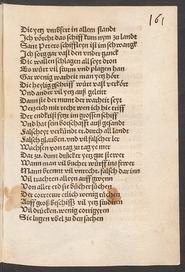 161
Die yetz verkert in allem standt
Ich vörcht das schiff kum nym zu landt
Sant Peters schifflein ist im schwangk
Ich sorg gar vast den vnder ganck
Die wallen schlagen all seyt dron
Es würt vil sturm vnd plagen han
Gar wenig warheit man yetz hört
Die heylig gschrifft würt vast verkört
Vnd ander vil yetz vß geleitt
Dann sie der munt der warheit seyt
Verzich mir recht wen ich hie triff
Der endkrist sitzt im grossen schiff
Vnd hat sein botschafft auß gesandt
Falscheyt verkündt er durch all landt
Falsch glauben, vnd vil falscher ler
Wachsen von tag zu tag ye mer
Dar zu, dunt drucker yetz gut stewer
Wann man vil bücher würff ins fewer
Man brennt vil vnrecht, falsch dar inn
Vil trachten alleyn auff gewynn
Von aller erd sie bücher suchen
Der correctur etlich wenig ruchen
Auff groß beschiß vil yetz studyern
Vil drucken, wenig corrigyeren
Sie lugen vbel zu den sachen